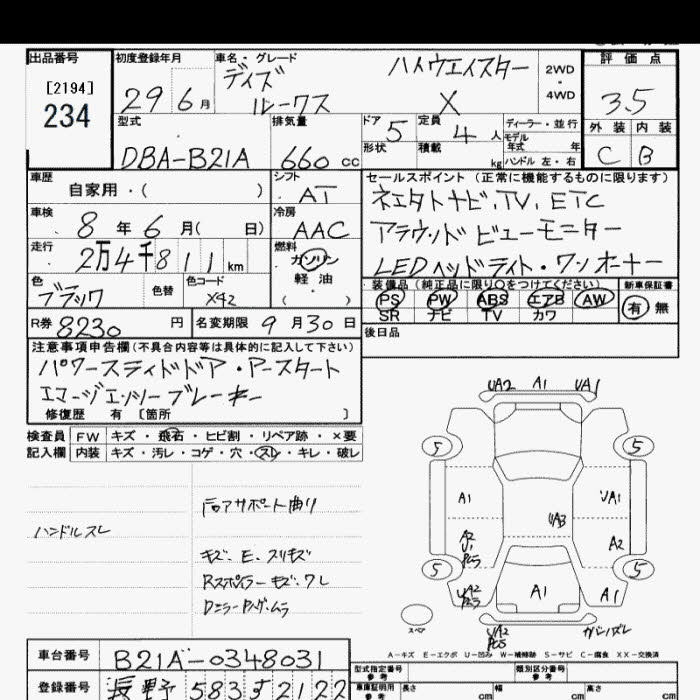 出品番号 初度登録年月 車名・グレード 評価点
[2194]
234
29 6月
デイズ ハイウェイスター
ルークス X
2WD・4WD
3.5
外装 内装
C B
型式 排気量 ドア 定員 ディーラー・並行
DBA-B21A 660 cc 5 4人
モデル年式 年
形状 積載 kg ハンドル 左・右
車歴 シフト セールスポイント (正常に機能するものに限ります)
自家用・( ) AT
ネエタトナビ、TV、ETC
車検 冷房
8年 6月( 日) AAC
アラウンドビューモニター
走行 燃料
2万4千811km ガソリン
LEDヘッドライト・ワンオーナー
軽油
( )
色 色替 色コード
ブラック X42
装備品(純正品に限り○をつけてください) 新車保証書
PS PW ABS エアB AW 有 無
SR ナビ TV カワ
R券 8230円 名変期限 9月30日
後日品
注意事項申告欄(不具合内容等は具体的に記入して下さい)
パワースライドドア・アースタート
エマージエンシーブレーキー
修復歴 有 〔箇所 〕
検査員 FW キズ・飛石・ヒビ割・リペア跡・×要
記入欄 内装 キズ・汚レ・コゲ・穴・スレ・キレ・破レ
ハンドルスレ
コアサポート曲り
キズ、E、スリキズ
Rスポイラーキズ、ワレ
UA2 A1 UA1
5 5
A1 UA1
UA3
A2 A2
U1
5 5
UA2 A1 A1
スペア
UA2
A-キズ E-エクボ U-凹み W-補修跡 S-サビ C-腐食 XX-交換済
車台番号 B21A-0348031
型式指定番号 参考 類別区分番号 参考
登録番号 長野 583 す 2122
車庫証明用 参考 長さ cm 幅 cm 高さ cm